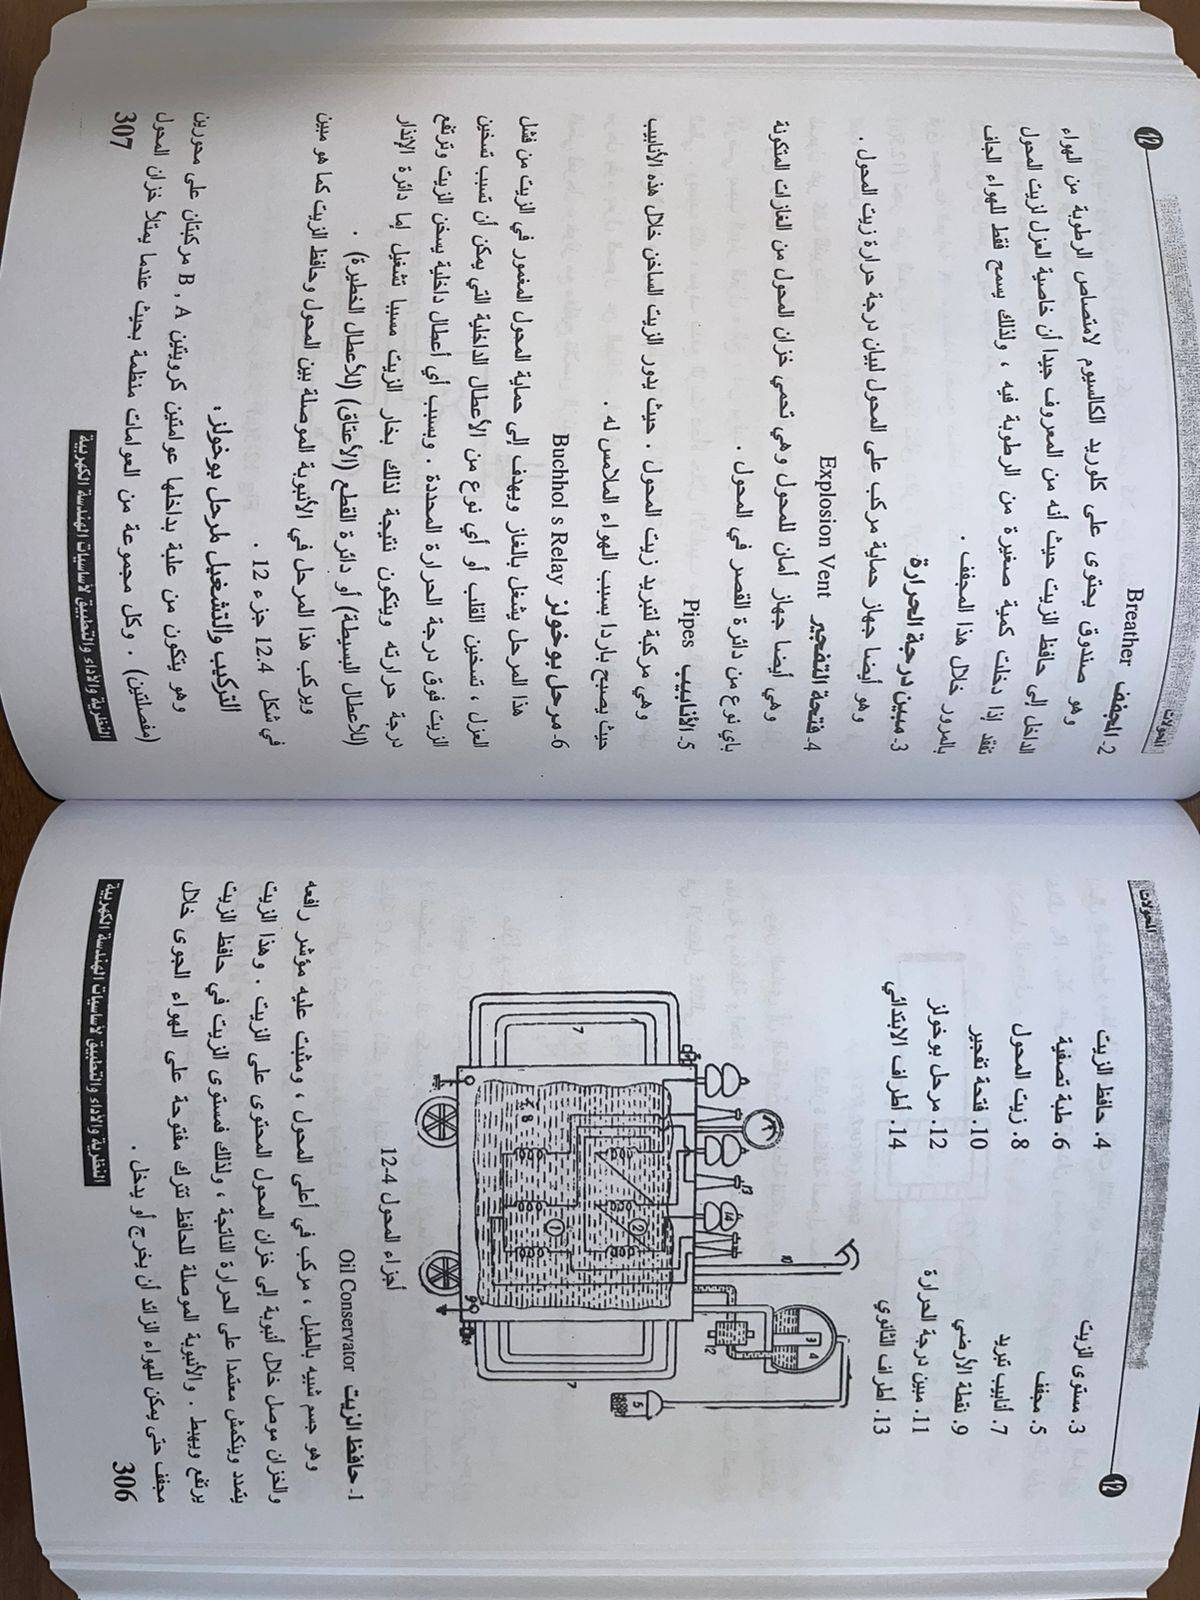 المحولات
12
3. مستوى الزيت
4. حافظ الزيت
5. مجفف
6. طبة تصفية
7. أنابيب تبريد
8. زيت المحول
9. نقطة الأرضي
10. فتحة تفجير
11. مبين درجة الحرارة
12. مرحل بوخولز
13. أطراف الثانوي
14. أطراف الابتدائي
7
8
1
2
13
14
10
3
4
12
5
9
7
أجزاء المحول 4-12
1- حافظ الزيت Oil Conservator
وهو جسم شبيه بالطبل ، مركب في أعلى المحول ، ومثبت عليه مؤشر رافعه
والخزان موصل خلال أنبوبة إلى خزان المحول المحتوى على الزيت . وهذا الزيت
يتمدد وينكمش معتمدا على الحرارة الناتجة ، ولذلك فمستوى الزيت في حافظ الزيت
يرتفع ويهبط . والأنبوبة الموصلة للحافظ تترك مفتوحة على الهواء الجوى خلال
مجفف حتى يمكن للهواء الزائد أن يخرج أو يدخل .
306
النظرية والأداء والتطبيق لأساسيات الهندسة الكهربية
المحولات
12
2- المجفف Breather
وهو صندوق يحتوى على كلوريد الكالسيوم لامتصاص الرطوبة من الهواء
الداخل إلى حافظ الزيت حيث أنه من المعروف جيداً أن خاصية العزل لزيت المحول
تفقد إذا دخلت كمية صغيرة من الرطوبة فيه ، ولذلك يسمح فقط للهواء الجاف
بالمرور خلال هذا المجفف .
3- مبين درجة الحرارة
وهو أيضا جهاز حماية مركب على المحول لبيان درجة حرارة زيت المحول .
4- فتحة التفجير Explosion Vent
وهي أيضا جهاز أمان للمحول وهي تحمي خزان المحول من الغازات المتكونة
باي نوع من دائرة القصر في المحول .
5- الأنابيب Pipes
وهي مركبة لتبريد زيت المحول . حيث يدور الزيت الساخن خلال هذه الأنابيب
حيث يصبح باردا بسبب الهواء الملامس له .
6- مرحل بوخولز Buchhol s Relay
هذا المرحل يشغل بالغاز ويهدف إلى حماية المحول المغمور في الزيت من فشل
العزل ، تسخين القلب أو أي نوع من الأعطال الداخلية التي يمكن أن تسبب تسخين
الزيت فوق درجة الحرارة المحددة . وبسبب أي أعطال داخلية يسخن الزيت وترتفع
درجة حرارته ويتكون نتيجة لذلك بخار الزيت مسببا تشغيل إما دائرة الإنذار
(للأعطال البسيطة) أو دائرة القطع (الأعتاق) (للأعطال الخطيرة) .
ويركب هذا المرحل في الأنبوبة الموصلة بين المحول وحافظ الزيت كما هو مبين
في شكل 12.4 جزء 12 .
التركيب والتشغيل لمرحل بوخولز .
وهو يتكون من علبة بداخلها عوامتين كرويتين B , A مركبتان على محورين
(مفصلتين) . وكل مجموعة من العوامات منظمة بحيث عندما يمتلأ خزان المحول
307
النظرية والأداء والتطبيق لأساسيات الهندسة الكهربية